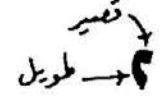 قصير
طويل